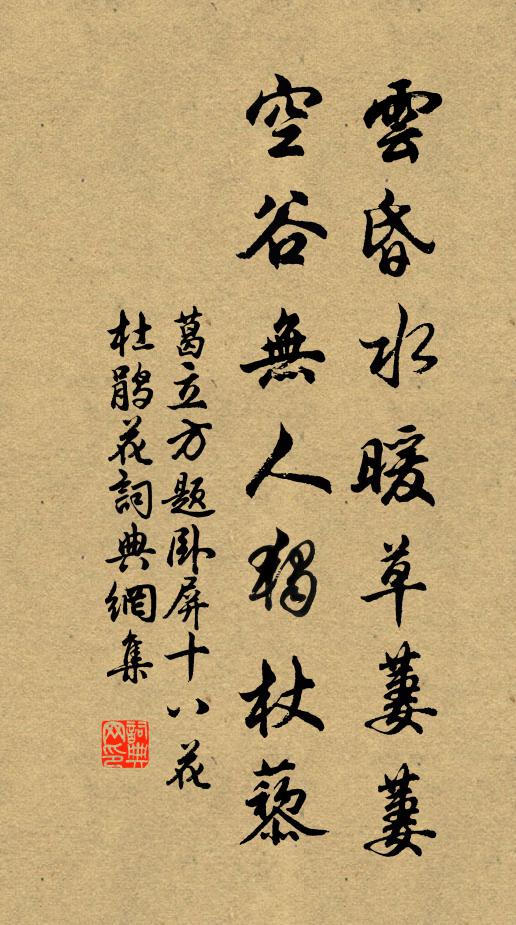 雲昏水暖草萋萋
空谷無人獨杖藜
葛立方題卧屏十八花
杜鵑花詞典網集
詞典网印